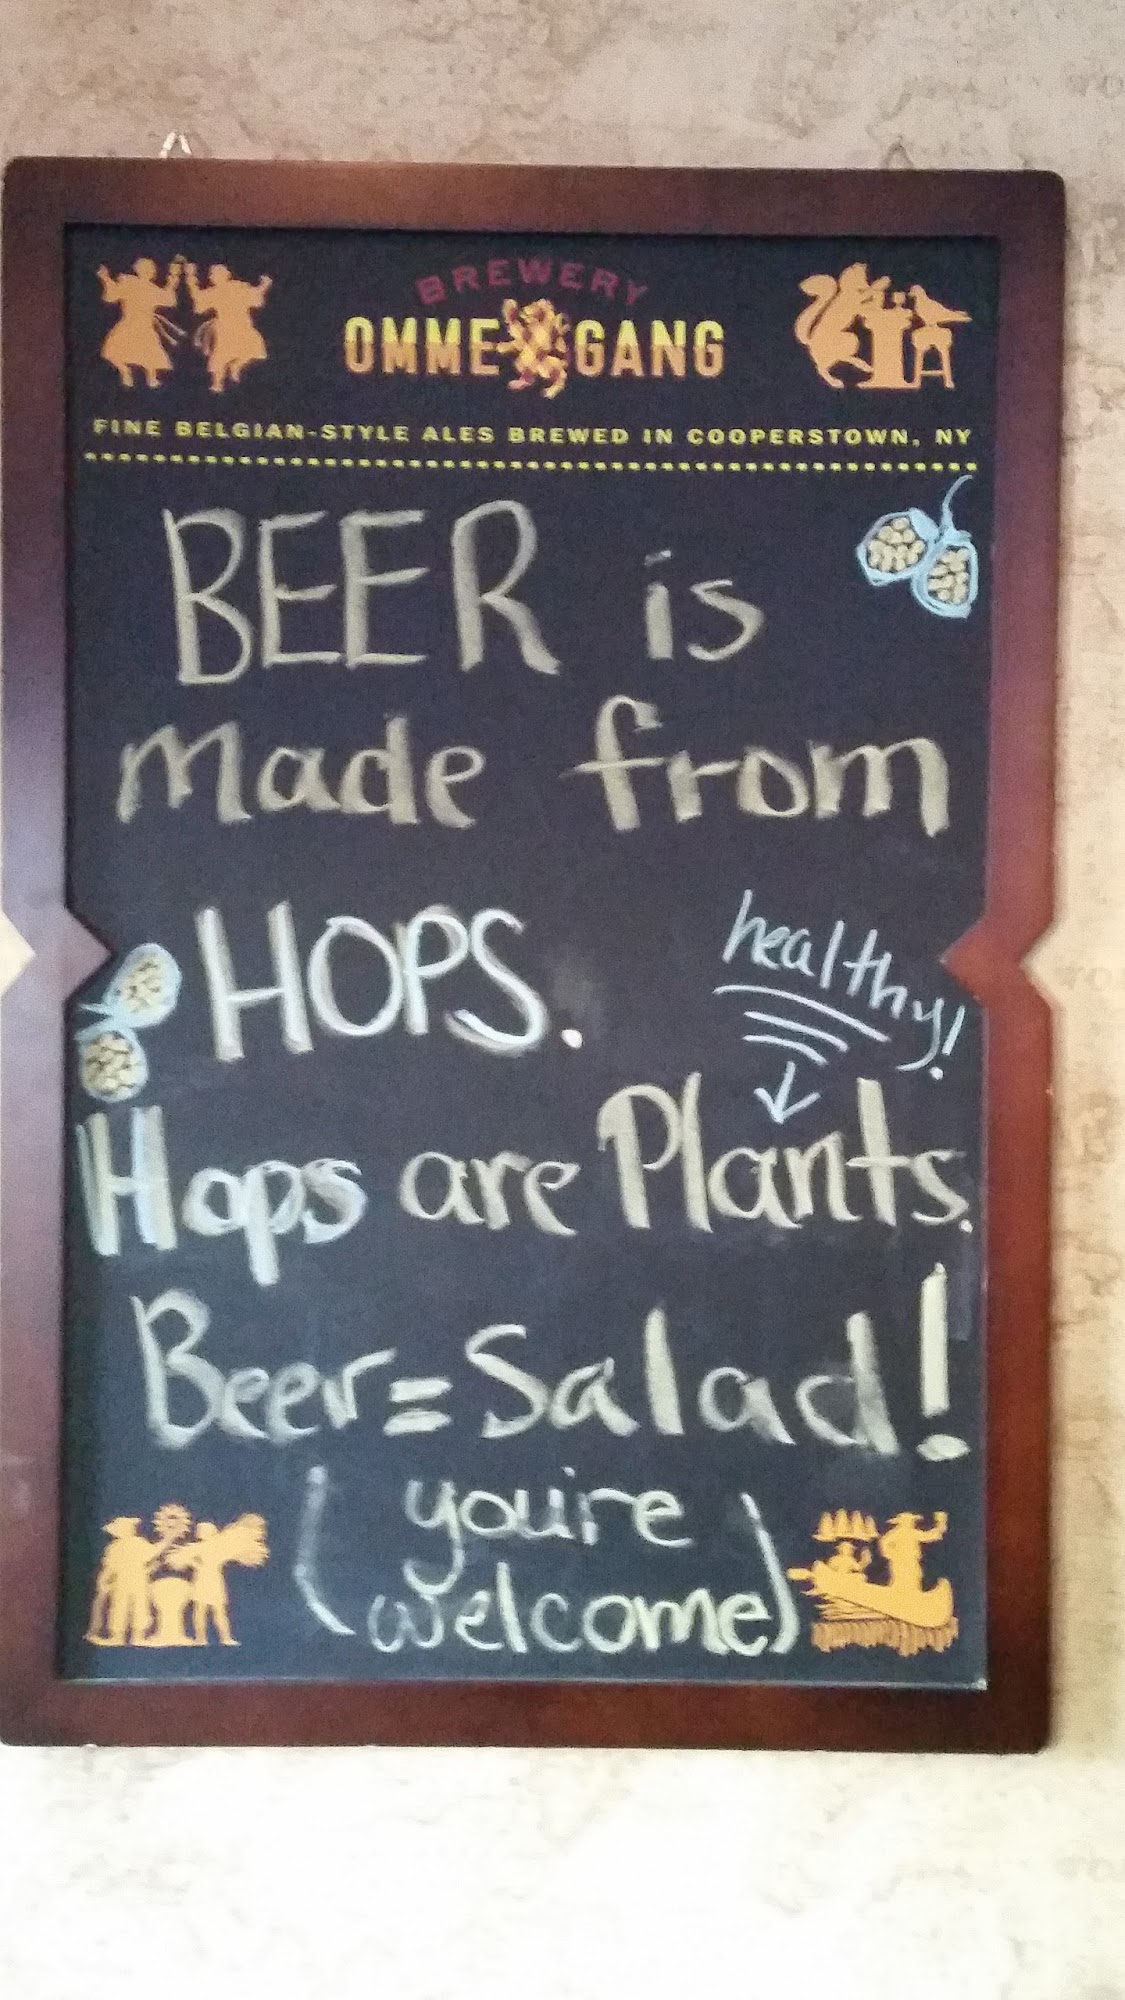 BREWERY
OMMEGANG
FINE BELGIAN-STYLE ALES BREWED IN COOPERSTOWN, NY
BEER is
made from
HOPS.
healthy!
Hops are Plants.
Beer = Salad!
(you're
welcome)